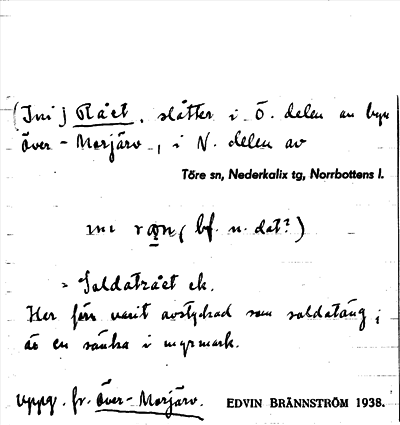 (Ini) Rået, slåtter i Ö. delen av byn
Över-Morjärv, i N. delen av
Töre sn, Nederkalix tg, Norrbottens l.
ini (bf. n. dat?)
Soldatrået ek.
Har förr varit avstyckad som soldatäng;
är en sänka i myrmark.
Uppg. fr. Över-Morjärv. EDVIN BRÄNNSTRÖM 1938.